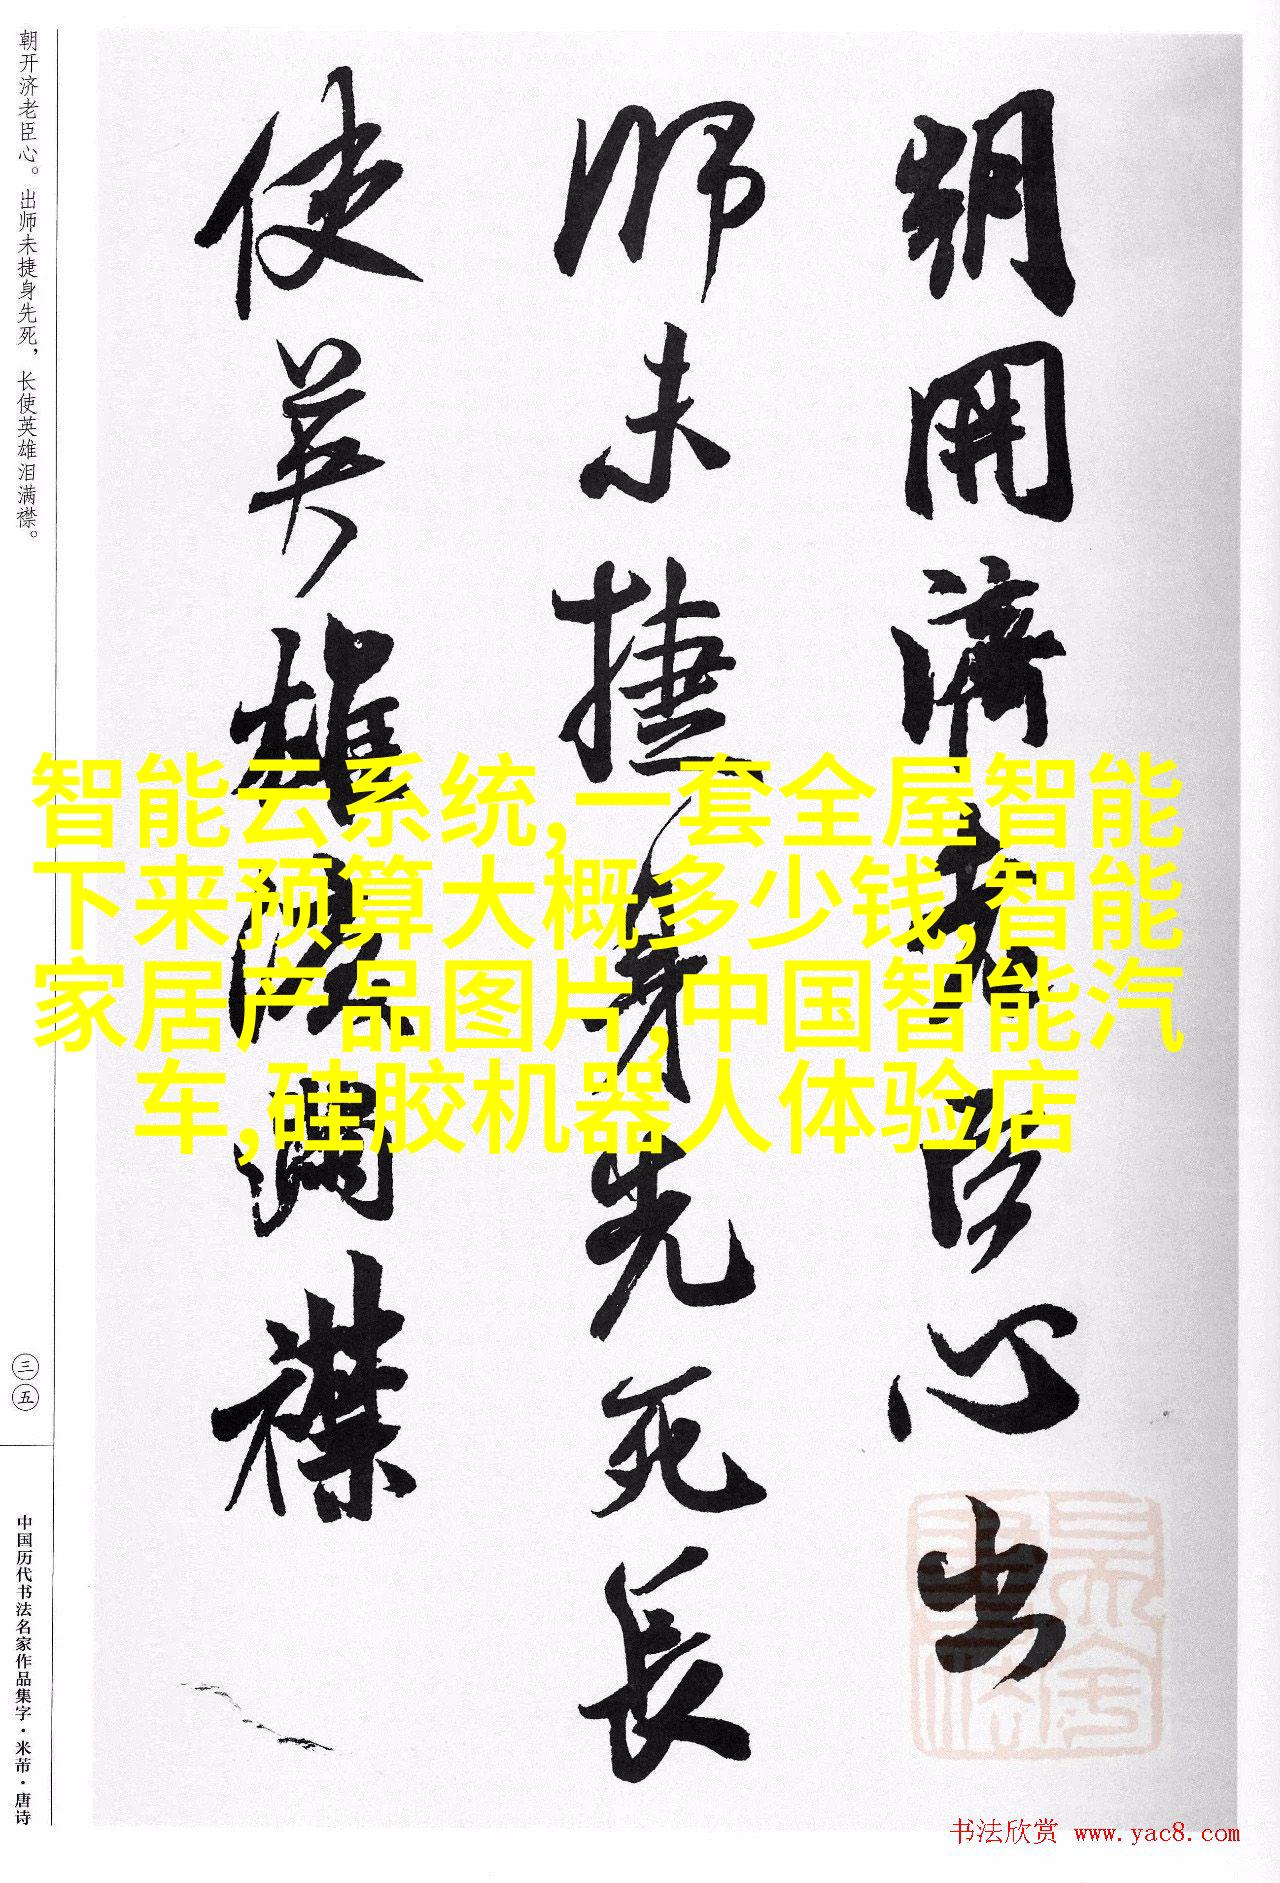 朝開濟老臣心出
師未捷身先死長
使英雄淚滿襟
朝开济老臣心。出师未捷身先死，长使英雄泪满襟。
三五
中国历代书法名家作品集字·米芾·唐诗
智能云系统,一套全屋智能
下来预算大概多少钱,智能
家居产品图片,中国智能汽
车,硅胶机器人体验店
书法欣赏 www.yac8.com